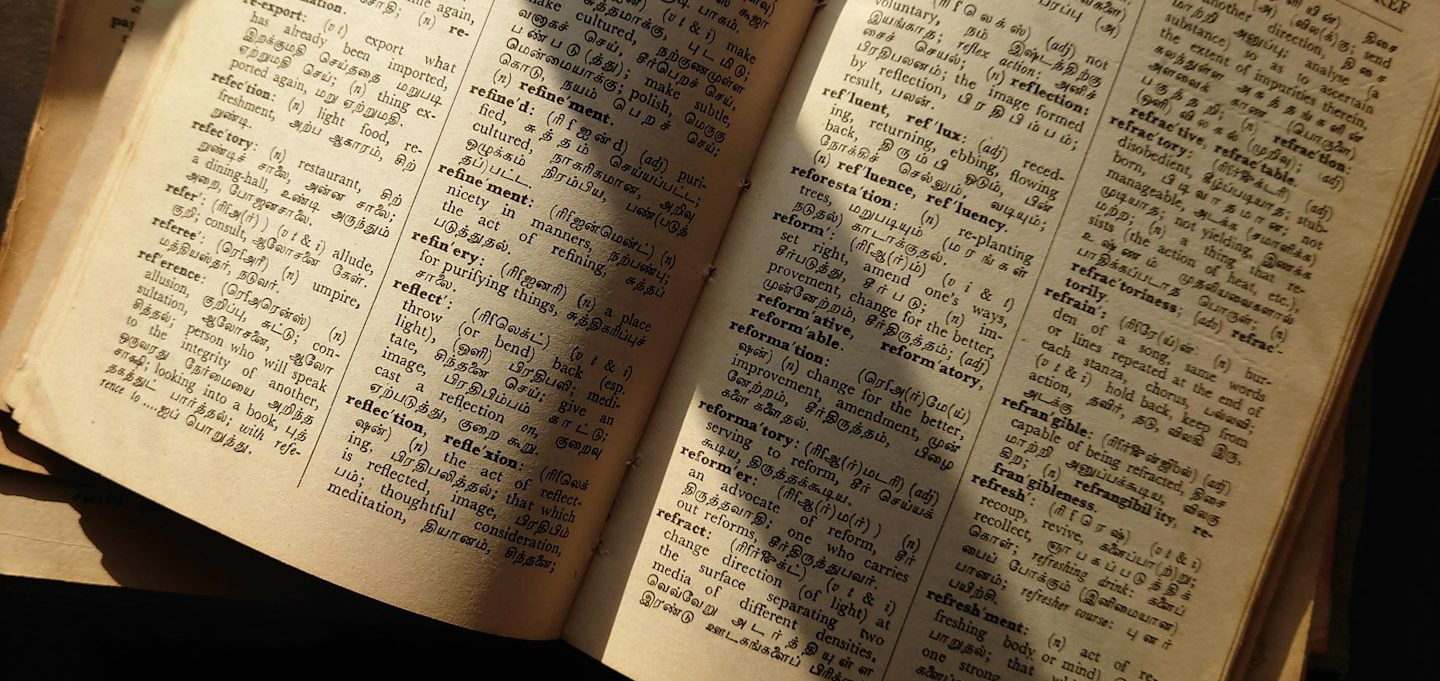 re-export: (v t & i) export what
has already been imported,
இறக்குமதி செய்ததை மறுபடி
ஏற்றுமதி செய்; (n) thing ex-
ported again, மறு ஏற்றுமதி.
refec'tion: (n) light food, re-
freshment, அற்ப ஆகாரம், சிற்
றுண்டி.
refec'tory: (n) restaurant, சிற்
றுண்டிச் சாலை, அன்ன சாலை;
a dining-hall, உண்டி அருந்தும்
அறை, போஜனசாலை.
refer': (ரிஃஅ(ர்) ) (v t & i) allude,
குறி; consult, ஆலோசனை கேள்.
referee': (ரெஃஅரீ) (n) umpire,
மத்தியஸ்தர், நடுவர்.
ref'erence: (ரெஃஅரென்ஸ்) (n)
allusion, குறிப்பு, சுட்டு; con-
sultation, ஆலோசனை, ஆலோ
சித்தல்; person who will speak
to the integrity of another,
ஒருவரது நேர்மையை அறிந்த
சாக்ஷி; looking into a book, புத்
தகத்துட் பார்த்தல்; with refe-
rence to ....ஐப் பொறுத்து.
make cultured, நற்குணமுள்ள
வனாகச் செய், சீர்பெறச் செய்,
பண்படு(த்து); make subtle,
மென்மையாக்கு; polish, மெருகு
கொடு, நயம் பெறச் செய்;
(n) refine'ment.
refine'd: (ரிஃஐன்ட்) (adj) puri-
fied, சுத்தம் செய்யப்பட்ட;
cultured, நாகரிகமான, அறிவு
ஒழுக்கம் நிரம்பிய, பண்(படுத்
தப்)பட்ட.
refine'ment: (ரிஃஐன்மென்ட்) (n)
nicety in manners, நற்பண்பு;
the act of refining, சுத்தப்
படுத்துதல்.
refin'ery: (ரிஃஐனரி) (n) a place
for purifying things, சுத்திகரிப்புச்
சாலை.
reflect': (ரிஃலெக்ட்) (v t & i)
throw (or bend) back (esp.
light), (ஒளி) பிரதிபலி; medi-
tate, சிந்தனை செய்; give an
image, பிரதிபிம்பம் காட்டு;
cast a reflection on, குறைவு
ஏற்படுத்து, குறை கூறு.
reflec'tion, refle'xion: (ரிஃலெக்
ஷன்) (n) the act of reflect-
ing, பிரதிபலித்தல்; that which
is reflected, image, பிரதிபிம்
பம்; thoughtful consideration,
meditation, தியானம், சிந்தனை;
(ரிஃலெக்ஸ்) (adj) not
voluntary, நம் இஷ்டத்திற்கு
இயங்காத; reflex action: அனிச்
சைச் செயல்; (n) reflection:
பிரதிபலனம்; the image formed
by reflection, பிரதிபிம்பம்;
result, பலன்.
ref'luent, ref'lux: (adj) reced-
ing, returning, ebbing, flowing
back, திரும்பி ஓடும், பின்
நோக்கிச் செல்லும், வடியும்;
(n) ref'luence, ref'luency.
reforesta'tion: (n) re-planting
trees, மறுபடியும் (மரங்கள்
நடுதல்) காடாக்குதல்.
reform': (ரிஃஆ(ர்)ம்) (v t & i)
set right, amend one's ways,
சீர்படுத்து, சீர்படு; (n) im-
provement, change for the better,
முன்னேற்றம், சீர்திருத்தம்; (adj)
reform'ative, reform'atory,
reform'able.
reforma'tion: (ரெஃஅ(ர்)மே(ய்)
ஷன்) (n) change for the better,
improvement, amendment, முன்
னேற்றம், சீர்திருத்தம், பிழை
களை களைதல்.
reforma'tory: (ரிஃஆ(ர்)மடரி) (adj)
serving to reform, சீர் செய்யக்
கூடிய, திருத்தக்கூடிய.
reform'er: (ரிஃஆ(ர்)ம(ர்) ) (n)
an advocate of reform, சீர்
திருத்தவாதி; one who carries
out reforms, சீர்திருத்துபவர்.
refract: (ரிஃர்ஐக்ட்) (v t & i)
change direction (of light) at
the surface separating two
media of different densities,
வெவ்வேறு அடர்த்தியுள்ள
இரண்டு ஊடகங்களைப்
REF
another direction, திசை
மாற்றி அனுப்பு; analyse (a
substance) so as to ascertain
the extent of impurities therein,
கலந்துள்ள அசுத்தங்களின்
அளவைக் காண (பொருளை)
பகுத்தறி; (n) refrac'tion:
(ஒளி) விலகல் (முறிவு); (adj)
refrac'tive, refrac'table.
refrac'tory: (ரிஃர்ஐக்டரி) (adj)
disobedient, கீழ்ப்படியாத; stub-
born, பிடிவாதமான; not
manageable, அடக்க (சமாளிக்க)
முடியாத; not yielding, இணக்க
மற்ற; (n) a thing that re-
sists (the action of heat, etc.),
உஷ்ணம் முதலியவைகளால்
பாதிக்கப்படாத பொருள்; (n)
refrac'toriness; (adv) refrac'-
torily.
refrain': (ரிஃரே(ய்)ன்: (n) bur-
den of a song, same words
or lines repeated at the end of
each stanza, chorus, பல்லவி;
(v t & i) hold back, keep from
action, தவிர், தடு, விலகி இரு,
அடக்கு.
refran'gible: (ரிஃர்ஐன்ஜிபில்) (adj)
capable of being refracted, திசை
மாற்றி அனுப்பக்கூடிய, விலகு
கிற; (n) refrangibil'ity, re-
fran'gibleness.
refresh': (ரிஃரெஷ்) (v t & i)
recoup, revive, களைப்பா(ற்)று;
recollect, ஞாபகப்படுத்திக்
கொள்; refreshing drink: களைப்
பைப் போக்கும் (இனிமையான)
பானம்; refresher course: புனர்
பயிற்சி.
refresh'ment: (n) act of re-
freshing body or mind)
பாறுதல்;
one strong